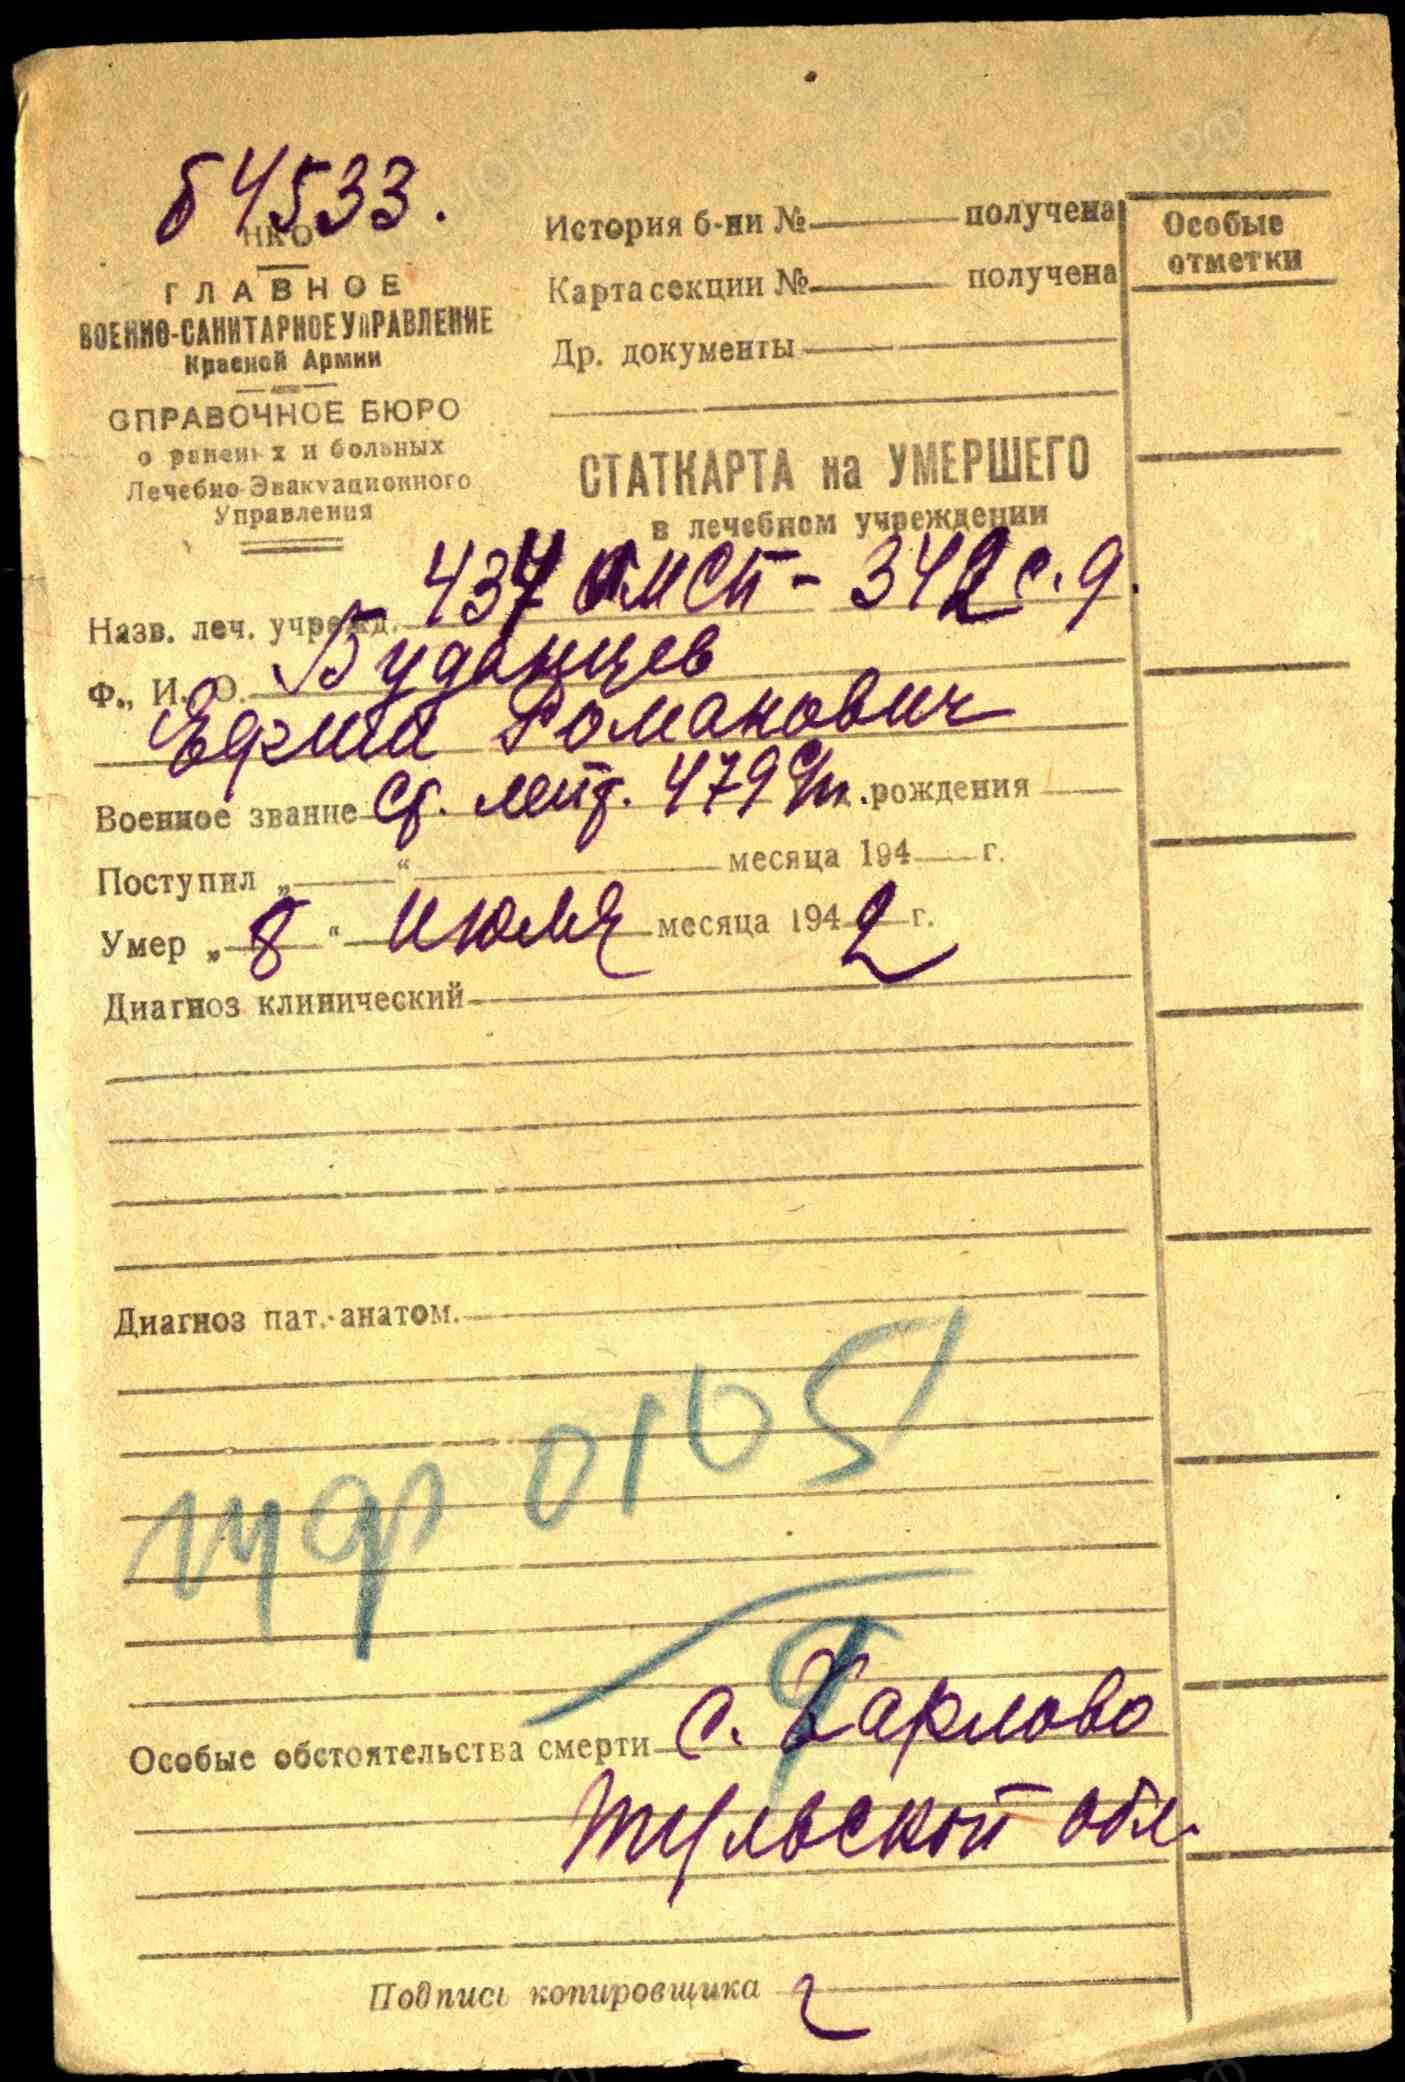 54533.
НКО
ГЛАВНОЕ
ВОЕННО-САНИТАРНОЕ УПРАВЛЕНИЕ
Красной Армии
СПРАВОЧНОЕ БЮРО
о раненых и больных
Лечебно-Эвакуационного
Управления
История б-ни № получена
Карта секции № получена
Др. документы
Особые
отметки
СТАТКАРТА на УМЕРШЕГО
в лечебном учреждении
Назв. леч. учрежд. 437 омсп - 342 с.д.
Ф., И., О. Буданцев
Ефим Романович
Военное звание Ст. лейт. 479 с/п. рождения
Поступил „ “ месяца 194 г.
Умер „ 8 “ июля месяца 1942 г.
Диагноз клинический
Диагноз пат.-анатом.
0165
Особые обстоятельства смерти с. Харлово
Тульской обл.
Подпись копировщика